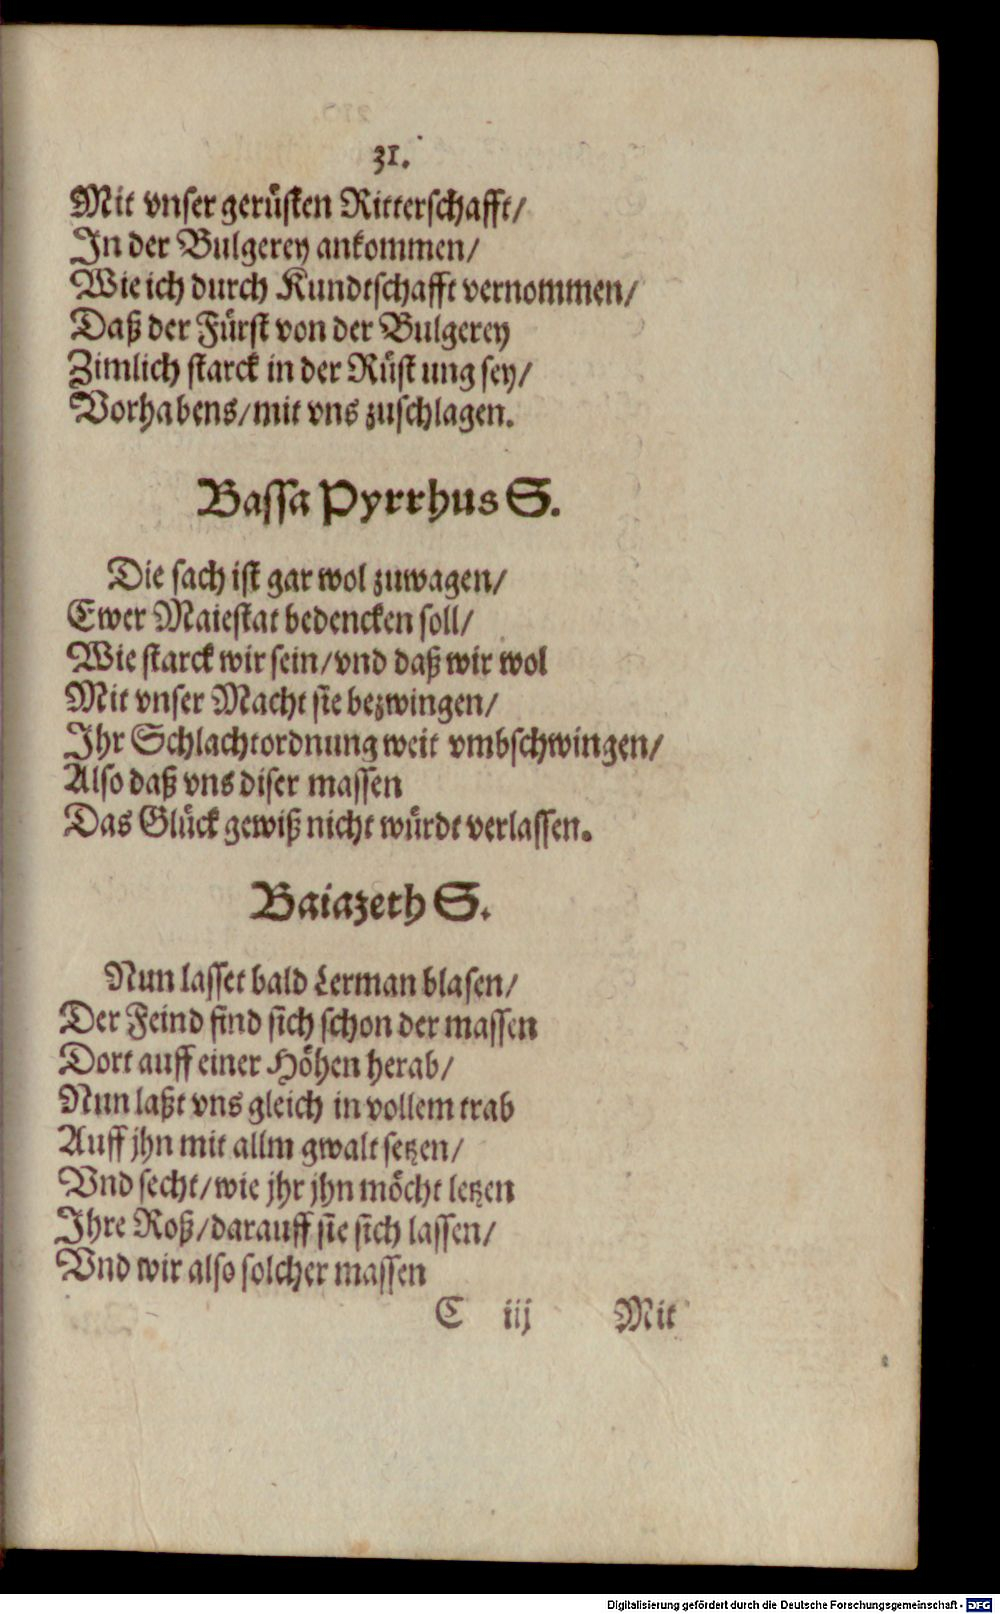 31.
Mit vnser gerüsten Ritterschafft/
In der Bulgerey ankommen/
Wie ich durch Kundtschafft vernommen/
Daß der Fürst von der Bulgerey
Zimlich starck in der Rüst ung sey/
Vorhabens/mit vns zuschlagen.
Bassa Pyrrhus S.
Die sach ist gar wol zuwagen/
Ewer Maiestat bedencken soll/
Wie starck wir sein/vnd daß wir wol
Mit vnser Macht sie bezwingen/
Ihr Schlachtordnung weit vmbschwingen/
Also daß vns diser massen
Das Glück gewiß nicht würdt verlassen.
Baiazeth S.
Nun lasset bald Lerman blasen/
Der Feind find sich schon der massen
Dort auff einer Höhen herab/
Nun laßt vns gleich in vollem trab
Auff jhn mit allm gwalt setzen/
Vnd secht/wie jhr jhn möcht letzen
Ihre Roß/darauff sie sich lassen/
Vnd wir also solcher massen
C iij Mit
Digitalisierung gefördert durch die Deutsche Forschungsgemeinschaft - DFG